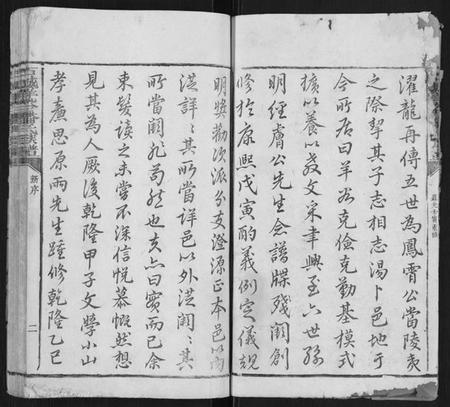 濯龍再傳五世為鳳霄公當陵夷
之際挈其子志相志湯卜邑地于
今所居曰羊谷克儉克勤基模式
擴以養以教文采聿興至六世孫
明經膺公先生會譜牒殘闕創
修於康熙戊寅酌義例定儀規
明奬勸次派分支澄源正本邑以內
從詳詳其所當詳邑以外從闕闕其
所當闕非苟然也亥亦曰實而已余
束髮讀之未嘗不深信悅慕慨然想
見其為人厥後乾隆甲子文學小山
孝廉思原兩先生踵修乾隆乙巳
新序
二